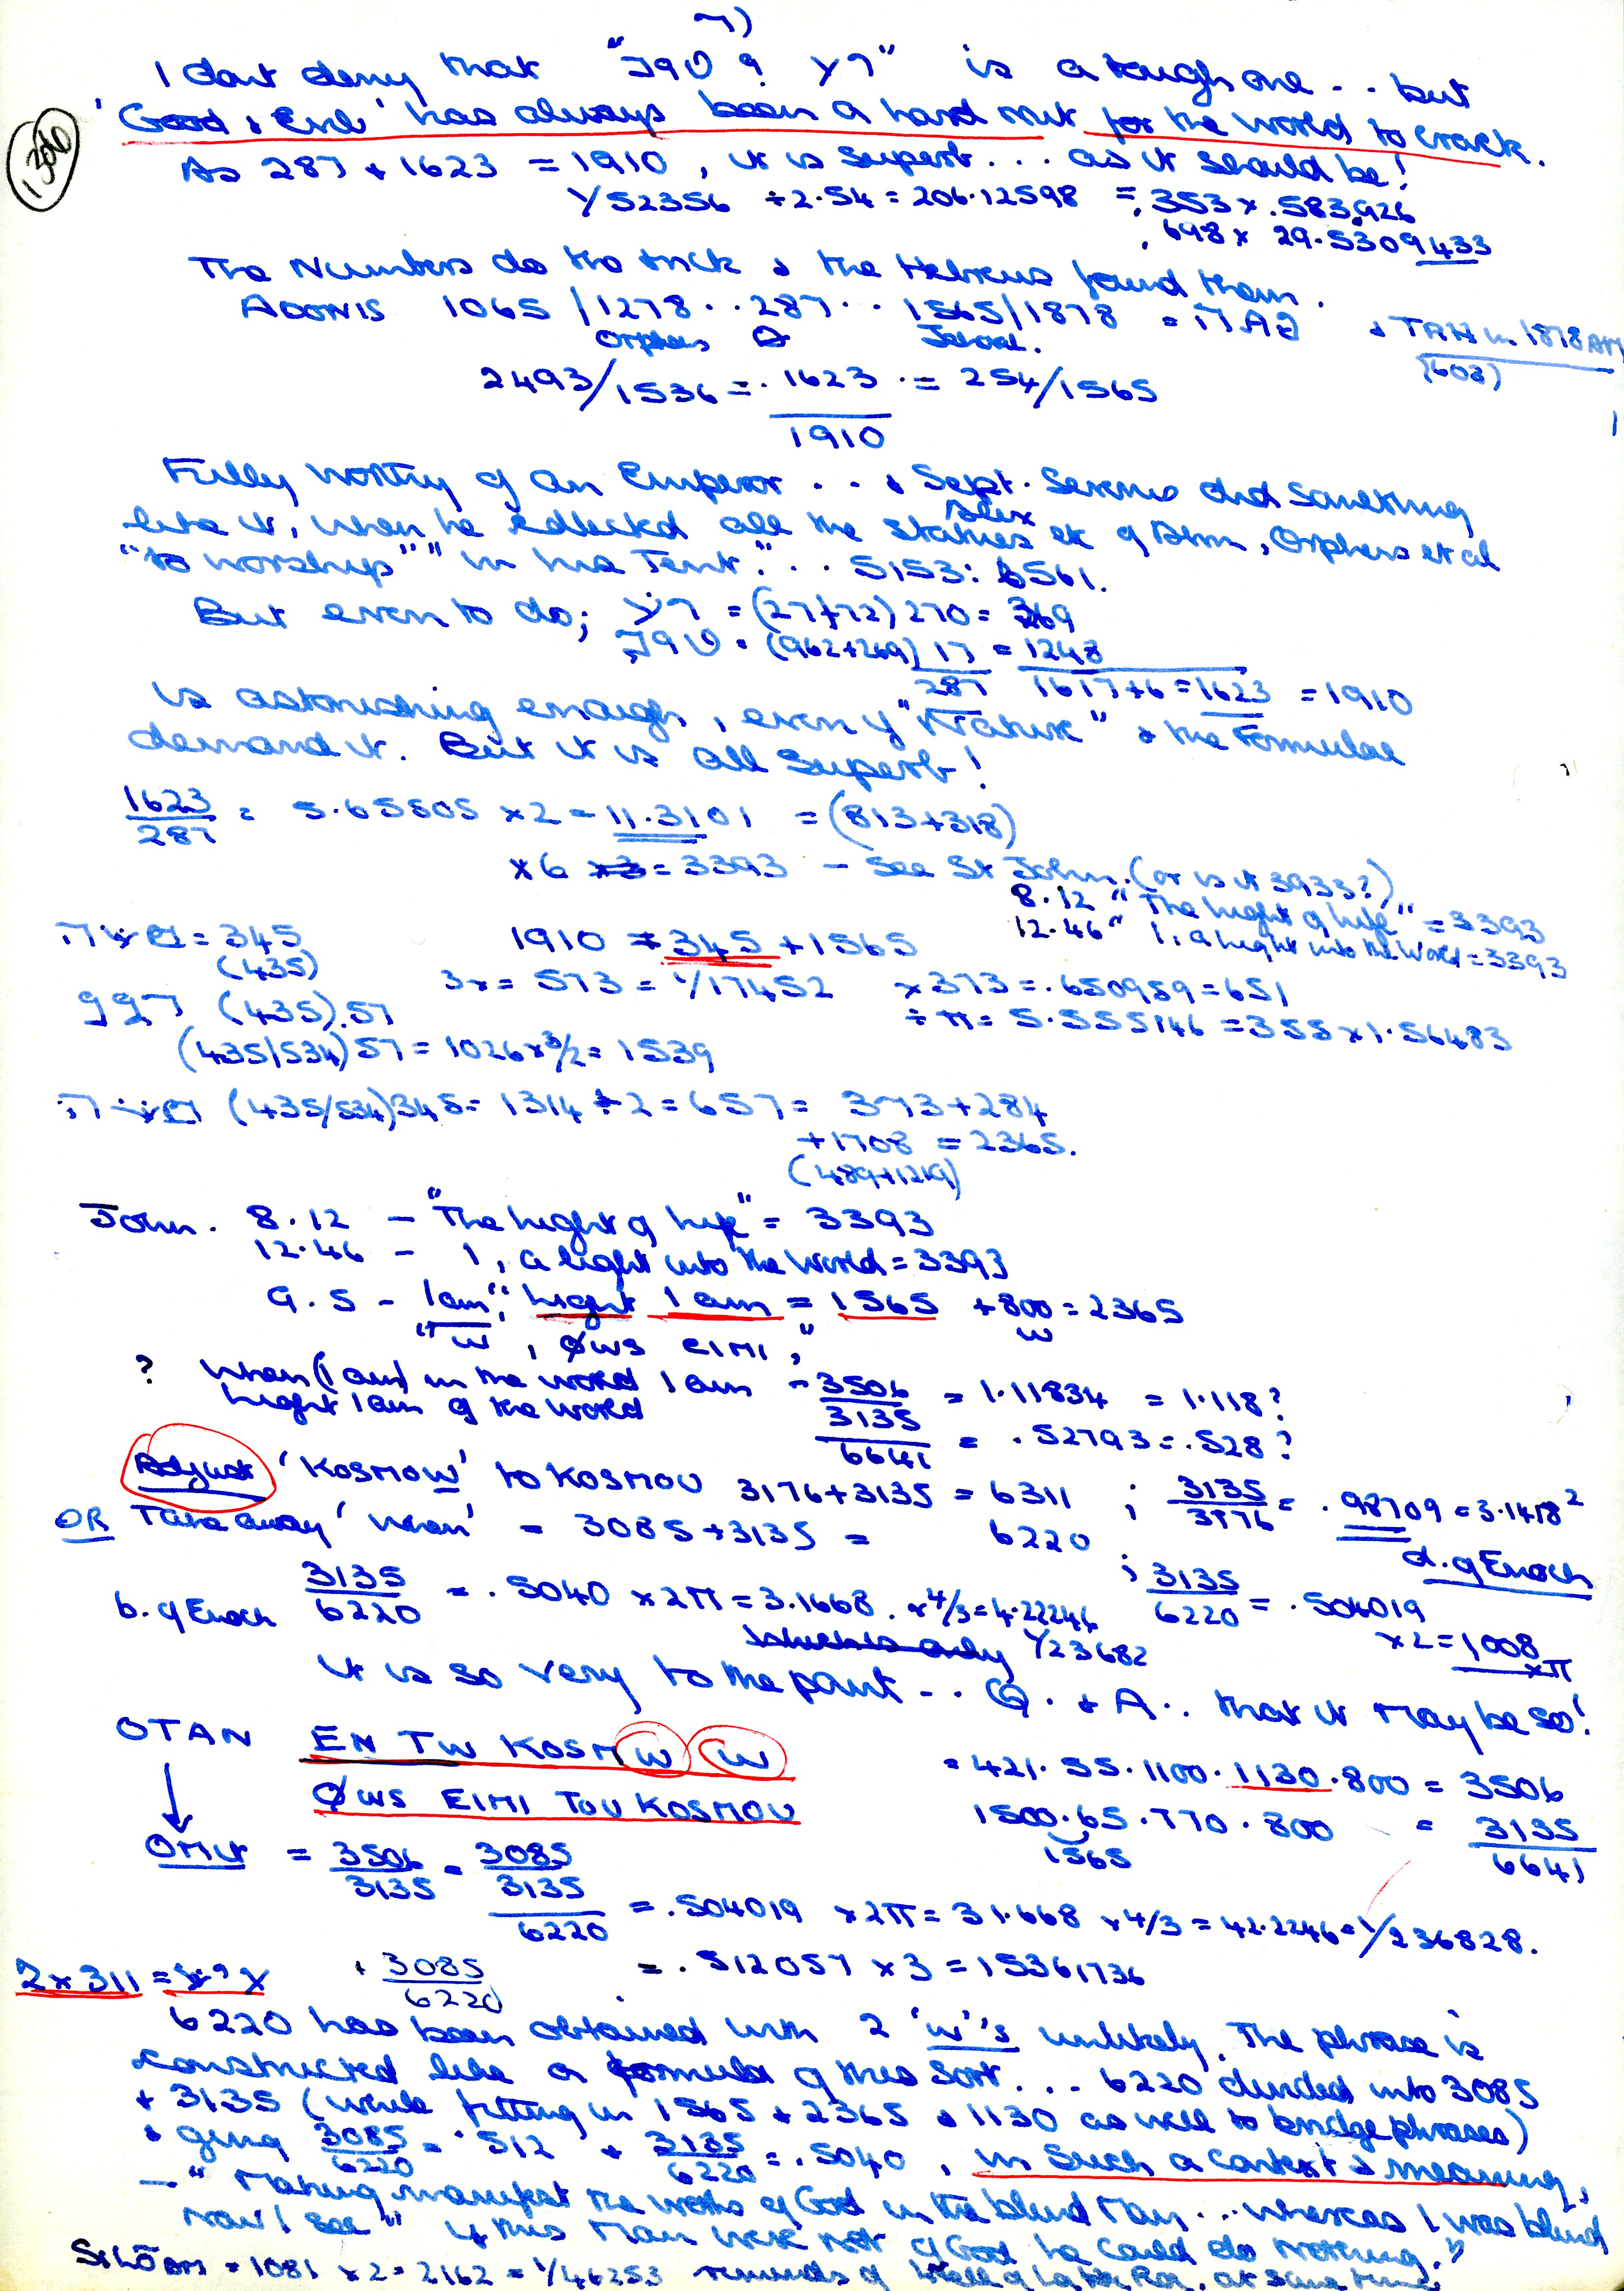 I dont deny that " is a tough one .. but
'Good & Evil' has always been a hard nut for the World to crack.
1306
As 287 + 1623 = 1910, it is Superb... as it should be!
1/52356 ÷ 2.54 = 206.12598 = 353 x .583926
, 698 x 29.5309433
The Numbers do the trick & the Hebrews found them.
ADONIS 1065 / 1278 .. 287 .. 1565 / 1878 =
Orpheus
& TAH in 1878 AM
(603)
2493/1536 = . 1623 . = 254/1565
1910
Fully worthy of an Emperor .. & Sept. Severus did something
Alex
like it, when he collected all the statues etc of Abrm, Orpheus et al
"to worship" "in his Tent." .. 5153: 6561.
But even to do; = (27+72) 270 = 369
= (962+269) 17 = 1248
287 1617+6 = 1623 = 1910
is astonishing enough, even if "Nature" & the Formulae
demand it. But it is all Superb!
1623/287 = 5.65505 x 2 = 11.3101 = (813+318)
x 6 x 3 = 3393 - See St John. (or is it 3933?)
8.12 "The light of life" = 3393
12.46 " I, a light into the World = 3393
= 345
(435)
1910 = 345 + 1565
3x = 573 = 1/17452 x 373 = .650959 = 651
(435).57 ÷ π = 5.555146 = 355 x 1.56483
(435/534) 57 = 1026 x 3/2 = 1539
(435/534) 345 = 1314 ÷ 2 = 657 = 373 + 284
+ 1708 = 2365.
(489+1219)
John. 8.12 - "The light of life" = 3393
12.46 - I, a light into the World = 3393
9.5 - I am", light I am = 1565 + 800 = 2365
w
"w, ØWS EIMI,"
? When (I am) in the world I am - 3506/3135 = 1.11834 = 1.118?
light I am of the world
6641 = .52793 = .528?
Adjust 'KOSMOW' to KOSMOU 3176 + 3135 = 6311 ; 3135/3176 = .98709 = 3.1418²
d. of Enoch
OR Take away 'when' = 3085 + 3135 = 6220
b. of Enoch 3135/6220 = .5040 x 2π = 3.1668. x 4/3 = 4.22246 ; 3135/6220 = .504019
which is only 1/23682 x 2 = 1008
x π
It is so very to the point .. Q. & A .. that it may be so!
OTAN EN TW KOSMW W = 421.55.1100.1130.800 = 3506
ØWS EIMI TOU KOSMOU 1500.65.770.800 = 3135
1565 6641
Omit = 3506/3135 = 3085/3135
6220 = .504019 x 2π = 31.668 x 4/3 = 42.2246 = 1/236828.
2 x 311 = + 3085/6220 = .512057 x 3 = 15361736
6220 has been obtained with 2 'w's unlikely. The phrase is
constructed like a formula of this sort ... 6220 divided into 3085
+ 3135 (while fitting in 1565 + 2365 & 1130 as well to bridge phrases)
& giving 3085/6220 = .512 + 3135/6220 = .5040, in such a context & meaning,
- "Making manifest the works of God in the blind Man ... whereas I was blind
now I see" "if this Man were not of God he could do nothing."
SILOAM = 1081 x 2 = 2162 = 1/46253 reminds of Well of at same time.